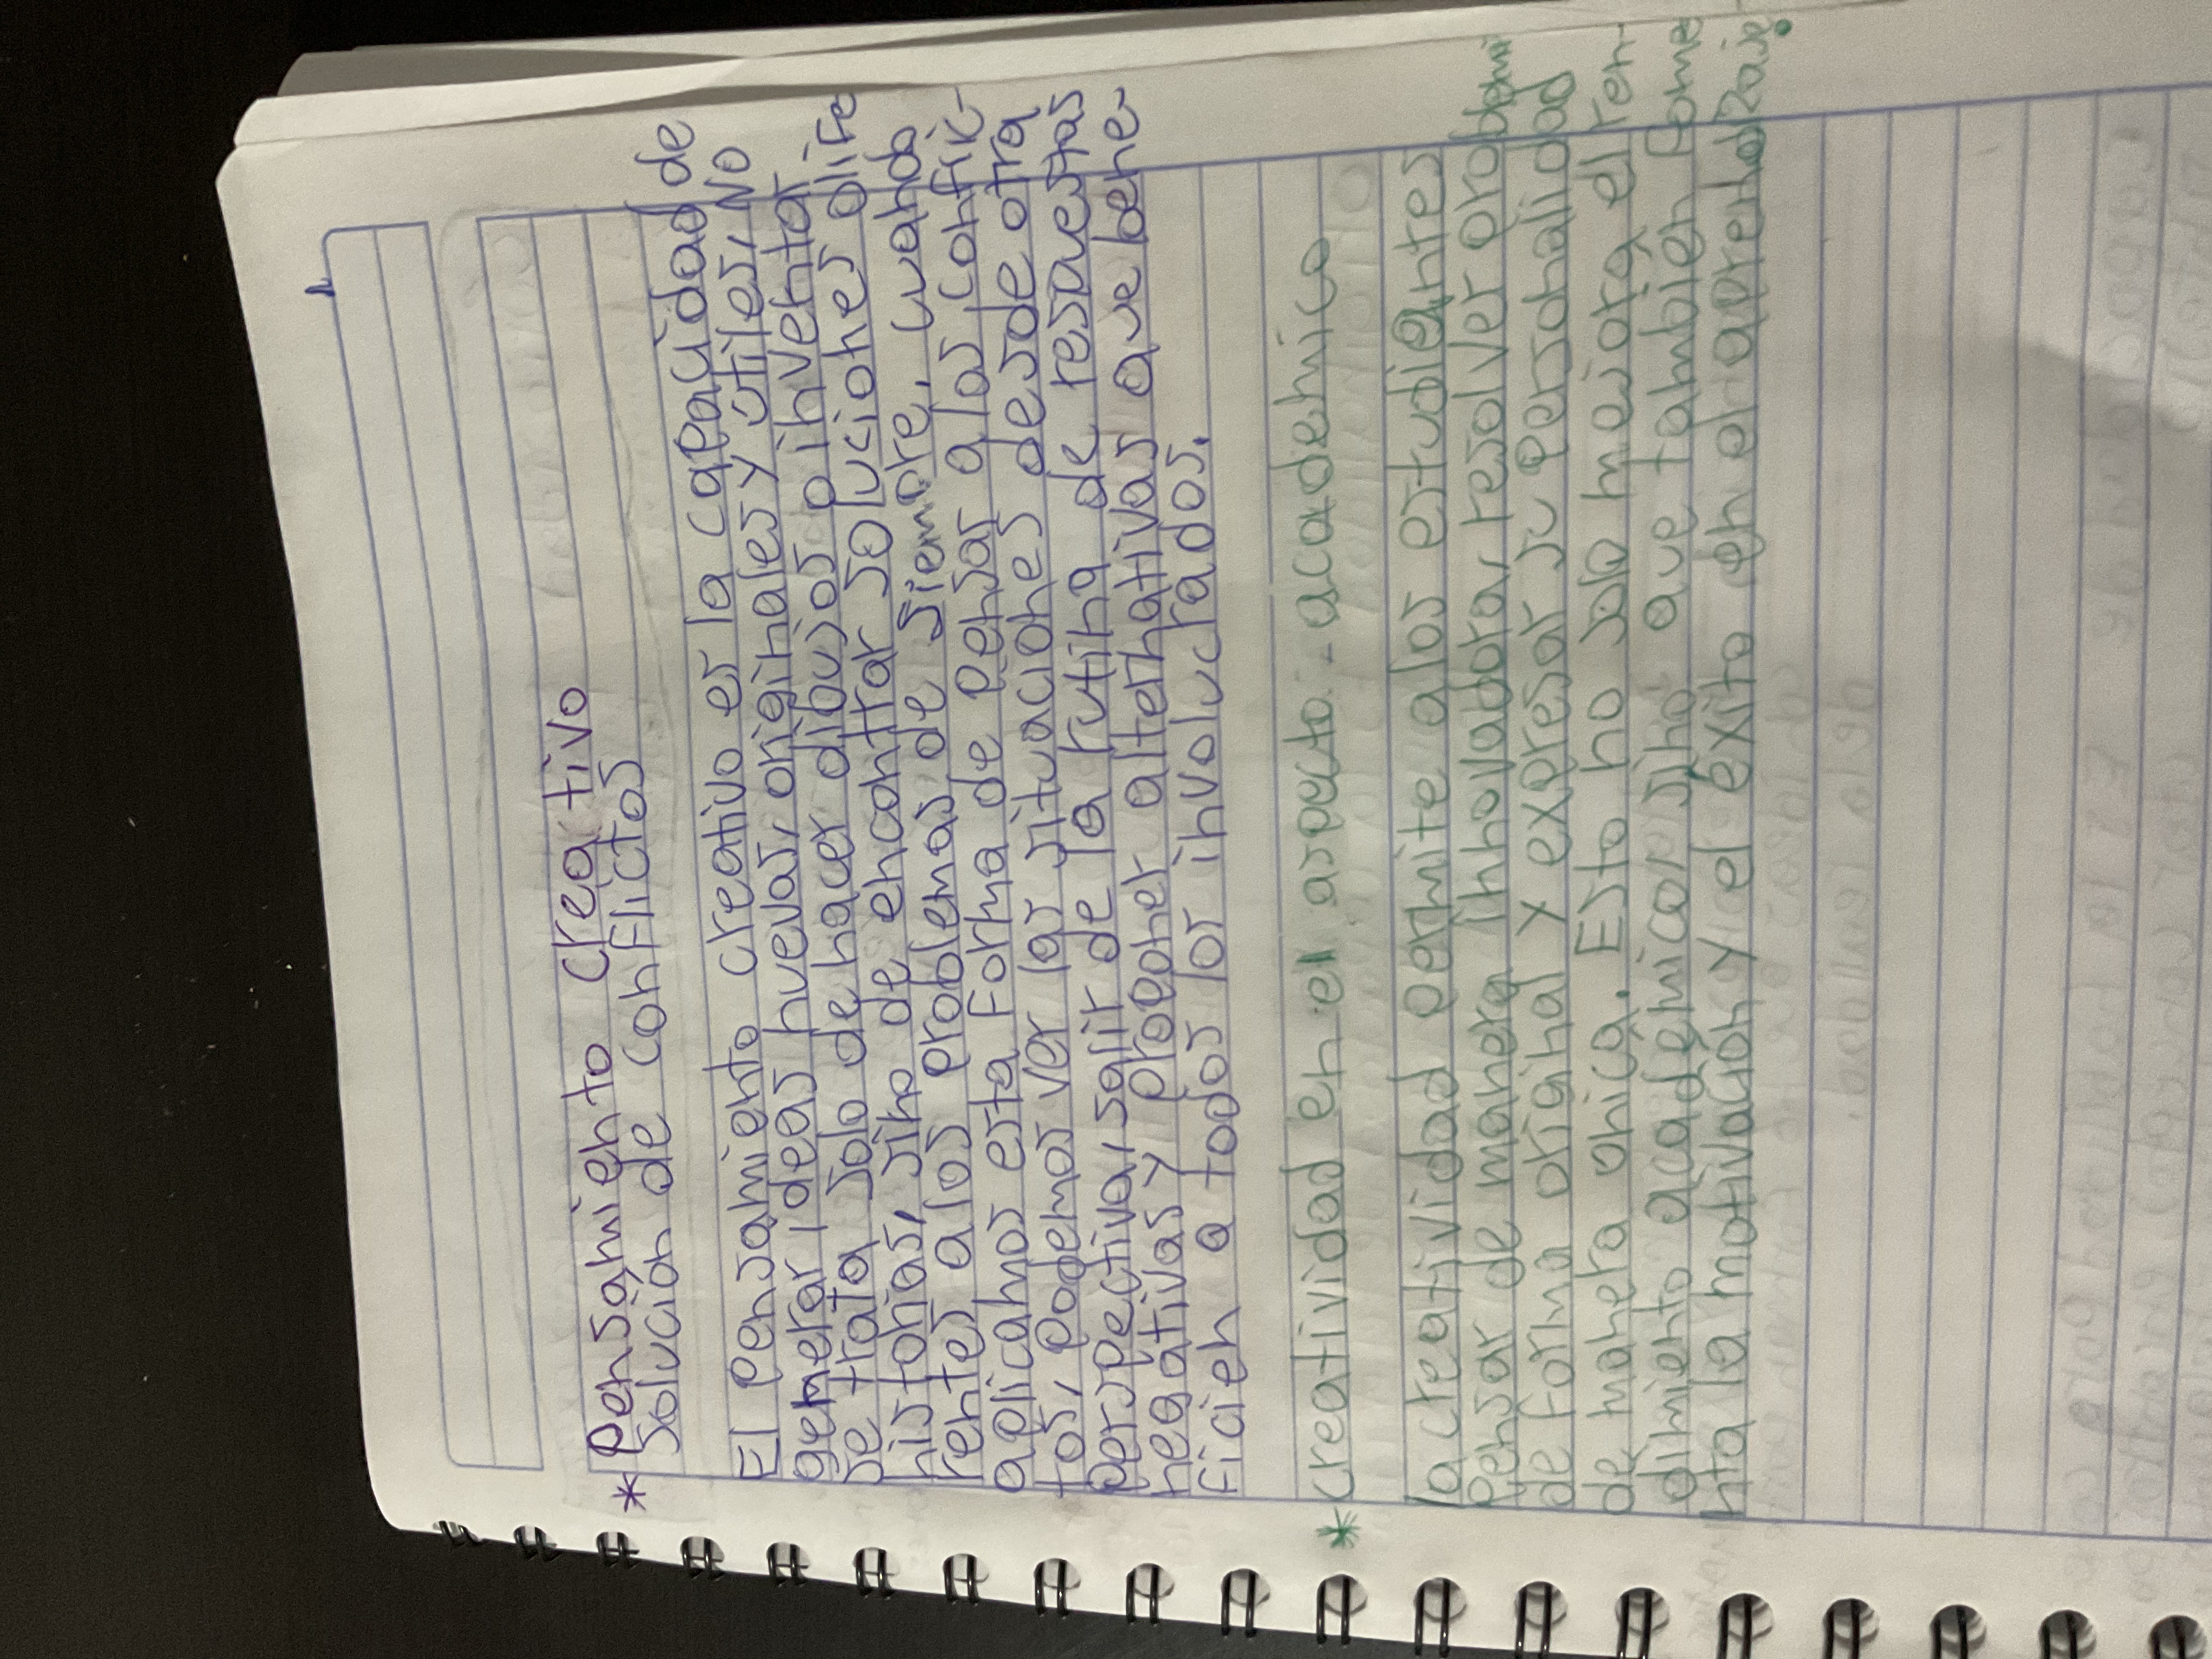 * Pensamiento Creativo
Solución de conflictos
El Pensamiento creativo es la capacidad de
generar ideas nuevas, originales y útiles, No
se trata solo de hacer dibujos o inventar
historias, sino de encontrar soluciones dife
rentes a los problemas de siempre, cuando
aplicamos esta forma de pensar a los conflic-
tos, podemos ver las situaciones desde otra
perspectiva, salir de la rutina de respuestas
negativas y proponer alternativas que bene-
ficien a todos los involucrados.
* Creatividad en el aspecto academico
la creatividad permite a los estudiantes
pensar de manera inhovadora, resolver problemas
de forma original y expresar su personalidad
de manera única. Esto no solo mejora el ren-
dimiento academico, sino que tambien fome
nta la motivacion y el éxito en el aprendizaje.